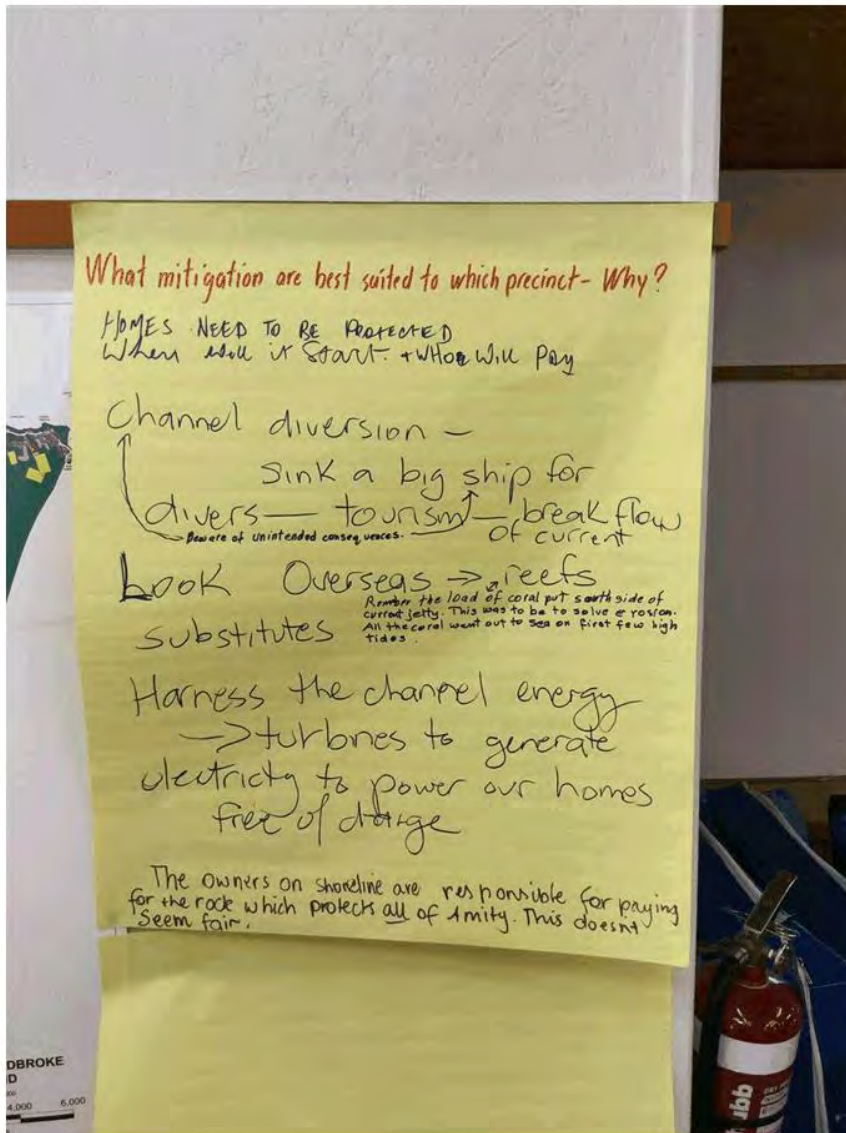 What mitigation are best suited to which precinct - Why?
HOMES NEED TO BE PROTECTED
When will it Start. + WHO Will Pay
Channel diversion -
Sink a big ship for
divers - tourism - break flow
of current
Beware of unintended consequences.
Look Overseas → reefs
Rember the load of coral put south side of
current jetty. This was to be to solve erosion.
All the coral went out to sea on first few high
tides.
substitutes
Harness the channel energy
→ turbines to generate
electricty to power our homes
free of charge
The owners on shoreline are responsible for paying
for the rock which protects all of Amity. This doesnt
Seem fair.
DBROKE
D
4,000 6,000
ubb